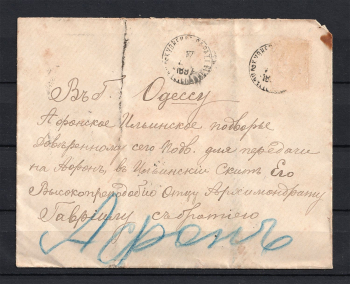 Въ г. Одессу
Афонское Ильинское подворье
Довѣренному сего Подв. для передачи
на Аѳонъ, въ Ильинскій Скитъ Его
Высокопреподобію Отцу Архимандриту
Гавріилу съ братіею
Афонъ